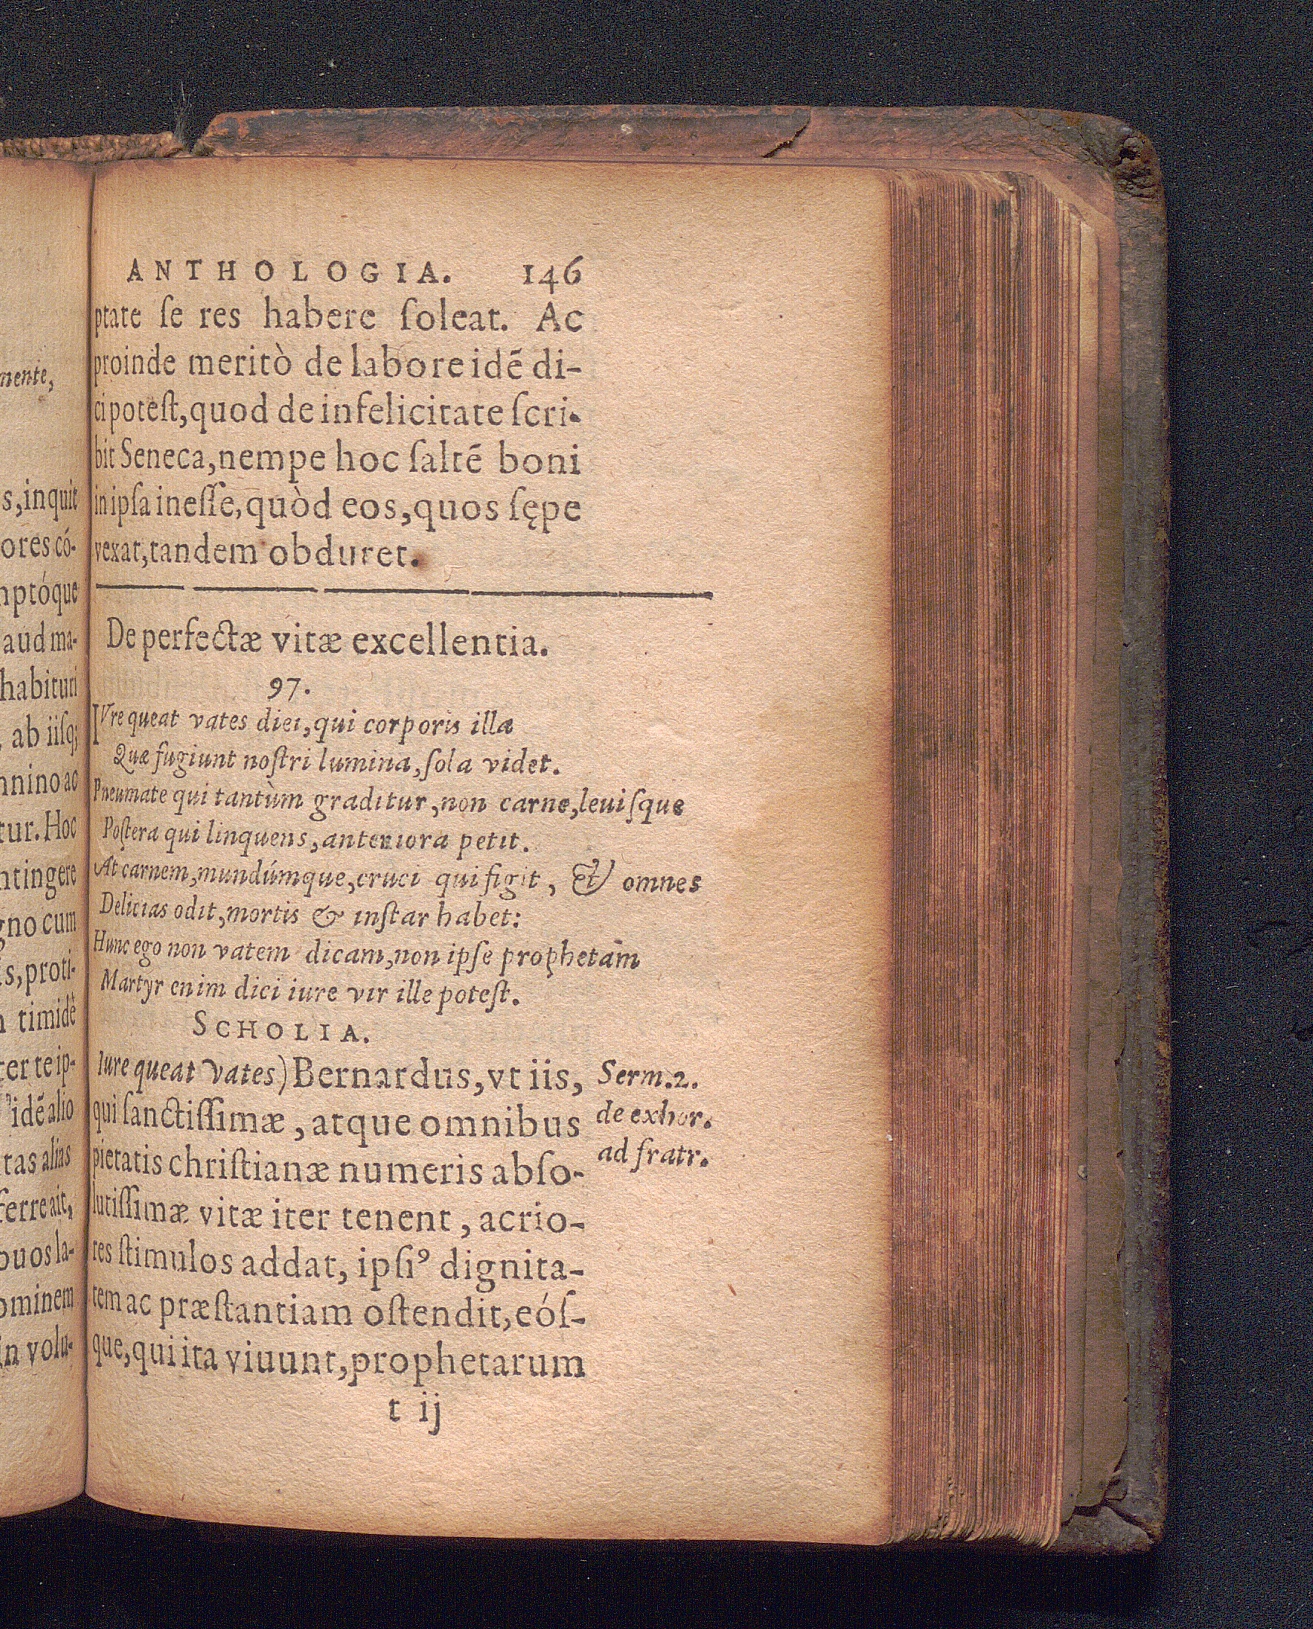 nente,
s,inquit
ores có-
nptóque
aud ma-
habituri
, ab iisq;
nnino ac
tur. Hoc
ntingere
gno cum
is,proti-
n timidè
ter te ip-
idē alio
tas alias
ferre ait,
ouos la-
ominem
in volu-
ANTHOLOGIA. 146
ptate ſe res habere ſoleat. Ac
proinde meritò de labore idē di-
ci poteſt,quod de infelicitate ſcri-
bit Seneca,nempe hoc ſaltē boni
in ipſa ineſſe,quòd eos,quos ſępe
vexat,tandem obduret.
De perfectæ vitæ excellentia.
97.
IVre queat vates dici,qui corporis illa
Quæ fugiunt noſtri lumina,ſola videt.
Pneumate qui tantùm graditur,non carne,leuiſque
Poſtera qui linquens,anteriora petit.
At carnem,mundúmque,cruci qui figit, & omnes
Delicias odit,mortis & inſtar habet:
Hunc ego non vatem dicam,non ipſe prophetam
Martyr enim dici iure vir ille poteſt.
SCHOLIA.
Iure queat vates) Bernardus,vt iis,
qui ſanctiſſimæ, atque omnibus
pietatis chriſtianæ numeris abſo-
lutiſſimæ vitæ iter tenent, acrio-
res ſtimulos addat, ipſiꝰ dignita-
tem ac præſtantiam oſtendit,eóſ-
que,qui ita viuunt,prophetarum
t ij
Serm.2.
de exhor.
ad fratr.